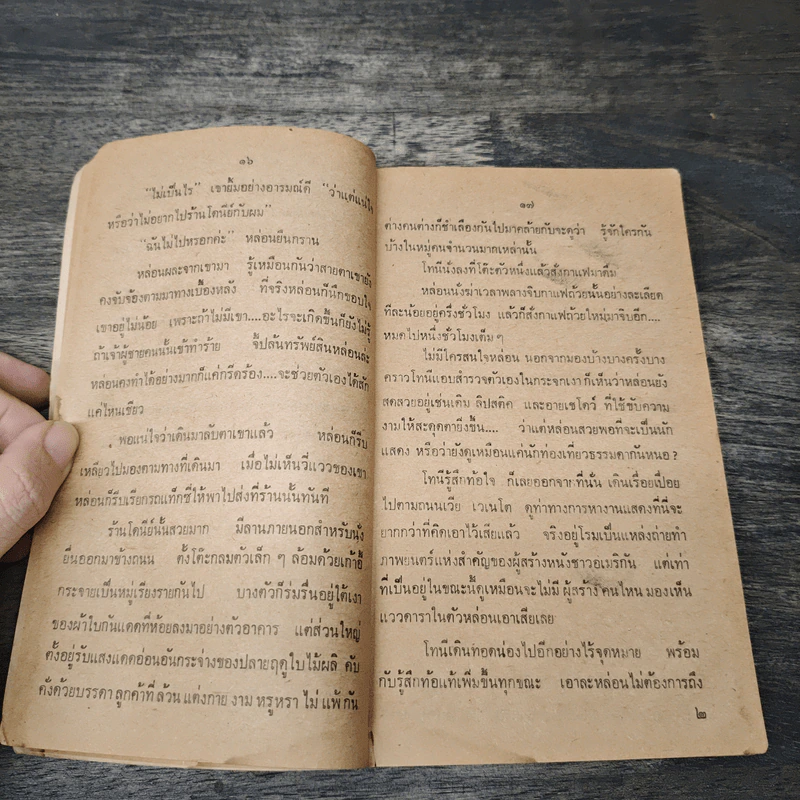 ๑๖
"ไม่เป็นไร" เขายิ้มอย่างอารมณ์ดี "ว่าแต่แน่ใจ
หรือว่าไม่อยากไปร้านโดนีย์กับผม"
"ฉันไม่ไปหรอกค่ะ" หล่อนยืนกราน
หล่อนผละจากเขามา รู้เหมือนกันว่าสายตาเขายัง
คงจับจ้องตามมาทางเบื้องหลัง ที่จริงหล่อนก็นึกขอบใจ
เขาอยู่ไม่น้อย เพราะถ้าไม่มีเขา....อะไรจะเกิดขึ้นก็ยังไม่รู้
ถ้าเจ้าผู้ชายคนนั้นเข้าทำร้าย จี้ปล้นทรัพย์สินหล่อนล่ะ
หล่อนคงทำได้อย่างมากก็แค่กรีดร้อง....จะช่วยตัวเองได้สัก
แค่ไหนเชียว
พอแน่ใจว่าเดินมาลับตาเขาแล้ว หล่อนก็รีบ
เหลียวไปมองตามทางที่เดินมา เมื่อไม่เห็นวี่แววของเขา
หล่อนก็รีบเรียกรถแท็กซี่ให้พาไปส่งที่ร้านนั้นทันที
ร้านโดนีย์นั้นสวยมาก มีลานภายนอกสำหรับนั่ง
ยื่นออกมาข้างถนน ตั้งโต๊ะกลมตัวเล็ก ๆ ล้อมด้วยเก้าอี้
กระจายเป็นหมู่เรียงรายกันไป บางตัวก็ร่มรื่นอยู่ใต้เงา
ของผ้าใบกันแดดที่ห้อยลงมาอย่างตัวอาคาร แต่ส่วนใหญ่
ตั้งอยู่รับแสงแดดอ่อนอันกระจ่างของปลายฤดูใบไม้ผลิ คับ
คั่งด้วยบรรดาลูกค้าที่ล้วนแต่งกายงามหรูหราไม่แพ้กัน
๑๗
ต่างคนต่างก็ชำเลืองกันไปมาคล้ายกับจะดูว่า รู้จักใครกัน
บ้างในหมู่คนจำนวนมากเหล่านั้น
โทนีนั่งลงที่โต๊ะตัวหนึ่งแล้วสั่งกาแฟมาดื่ม
หล่อนนั่งฆ่าเวลาพลางจิบกาแฟถ้วยนั้นอย่างละเลียด
ทีละน้อยอยู่ครึ่งชั่วโมง แล้วก็สั่งกาแฟถ้วยใหม่มาจิบอีก....
หมดไปหนึ่งชั่วโมงเต็มๆ
ไม่มีใครสนใจหล่อน นอกจากมองบ้างบางครั้งบาง
คราว โทนีแอบสำรวจตัวเองในกระจกเงา ก็เห็นว่าหล่อนยัง
สดสวยอยู่เช่นเดิม ลิปสติค และอายเชโดว์ ที่ใช้ขับความ
งามให้สะดุดตายิ่งขึ้น.... ว่าแต่หล่อนสวยพอที่จะเป็นนัก
แสดง หรือว่ายังดูเหมือนแค่นักท่องเที่ยวธรรมดากันหนอ ?
โทนีรู้สึกท้อใจ ก็เลยออกจากที่นั่น เดินเรื่อยเปื่อย
ไปตามถนนเวีย เวเนโต ดูท่าทางการหางานแสดงที่นี่จะ
ยากกว่าที่คิดเอาไว้เสียแล้ว จริงอยู่โรมเป็นแหล่งถ่ายทำ
ภาพยนตร์แห่งสำคัญของผู้สร้างหนังชาวอเมริกัน แต่เท่า
ที่เป็นอยู่ในขณะนี้ดูเหมือนจะไม่มี ผู้สร้าง คนไหน มองเห็น
แววดาราในตัวหล่อนเอาเสียเลย
โทนีเดินทอดน่องไปอีกอย่างไร้จุดหมาย พร้อม
กับรู้สึกท้อแท้เพิ่มขึ้นทุกขณะ เอาละหล่อนไม่ต้องการถึง
๒